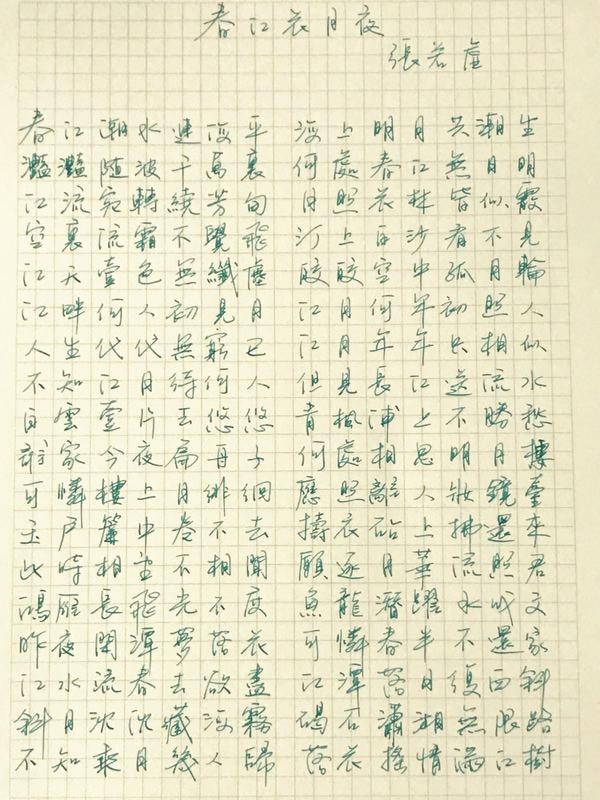 春江花月夜
張若虛
春江潮水連海平 海上明月共潮生
灩灩隨波千萬裏 何處春江無月明
江流宛轉繞芳甸 月照花林皆似霰
空裏流霜不覺飛 汀上白沙看不見
江天壹色無纖塵 皎皎空中孤月輪
江畔何人初見月 江月何年初照人
人生代代無窮已 江月年年只相似
不知江月待何人 但見長江送流水
白雲壹片去悠悠 青楓浦上不勝愁
誰家今夜扁舟子 何處相思明月樓
可憐樓上月徘徊 應照離人妝鏡臺
玉戶簾中卷不去 擣衣砧上拂還來
此時相望不相聞 願逐月華流照君
鴻雁長飛光不度 魚龍潛躍水成文
昨夜閑潭夢落花 可憐春半不還家
江水流春去欲盡 江潭落月復西斜
斜月沈沈藏海霧 碣石瀟湘無限路
不知乘月幾人歸 落花搖情滿江樹